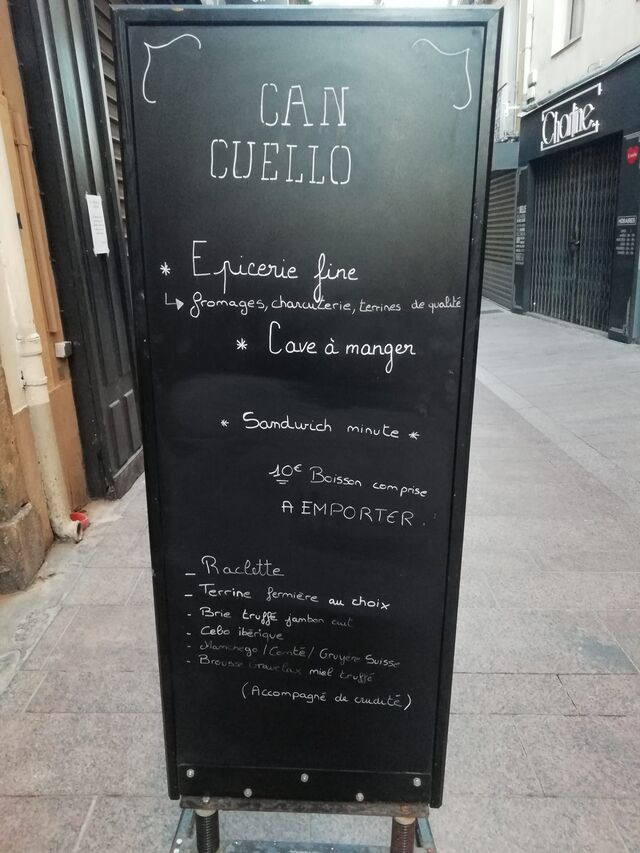 CAN
CUELLO
* Epicerie fine
↳ fromages, charcuterie, terrines de qualité
* Cave à manger
* Sandwich minute *
10€ Boisson comprise
A EMPORTER.
- Raclette
- Terrine fermière au choix
- Brie truffé jambon cuit
- Cebo ibérique
- Manchego / Comté / Gruyère Suisse
- Brousse Gravelax miel truffé
(Accompagné de crudité)
Charline
HORAIRES